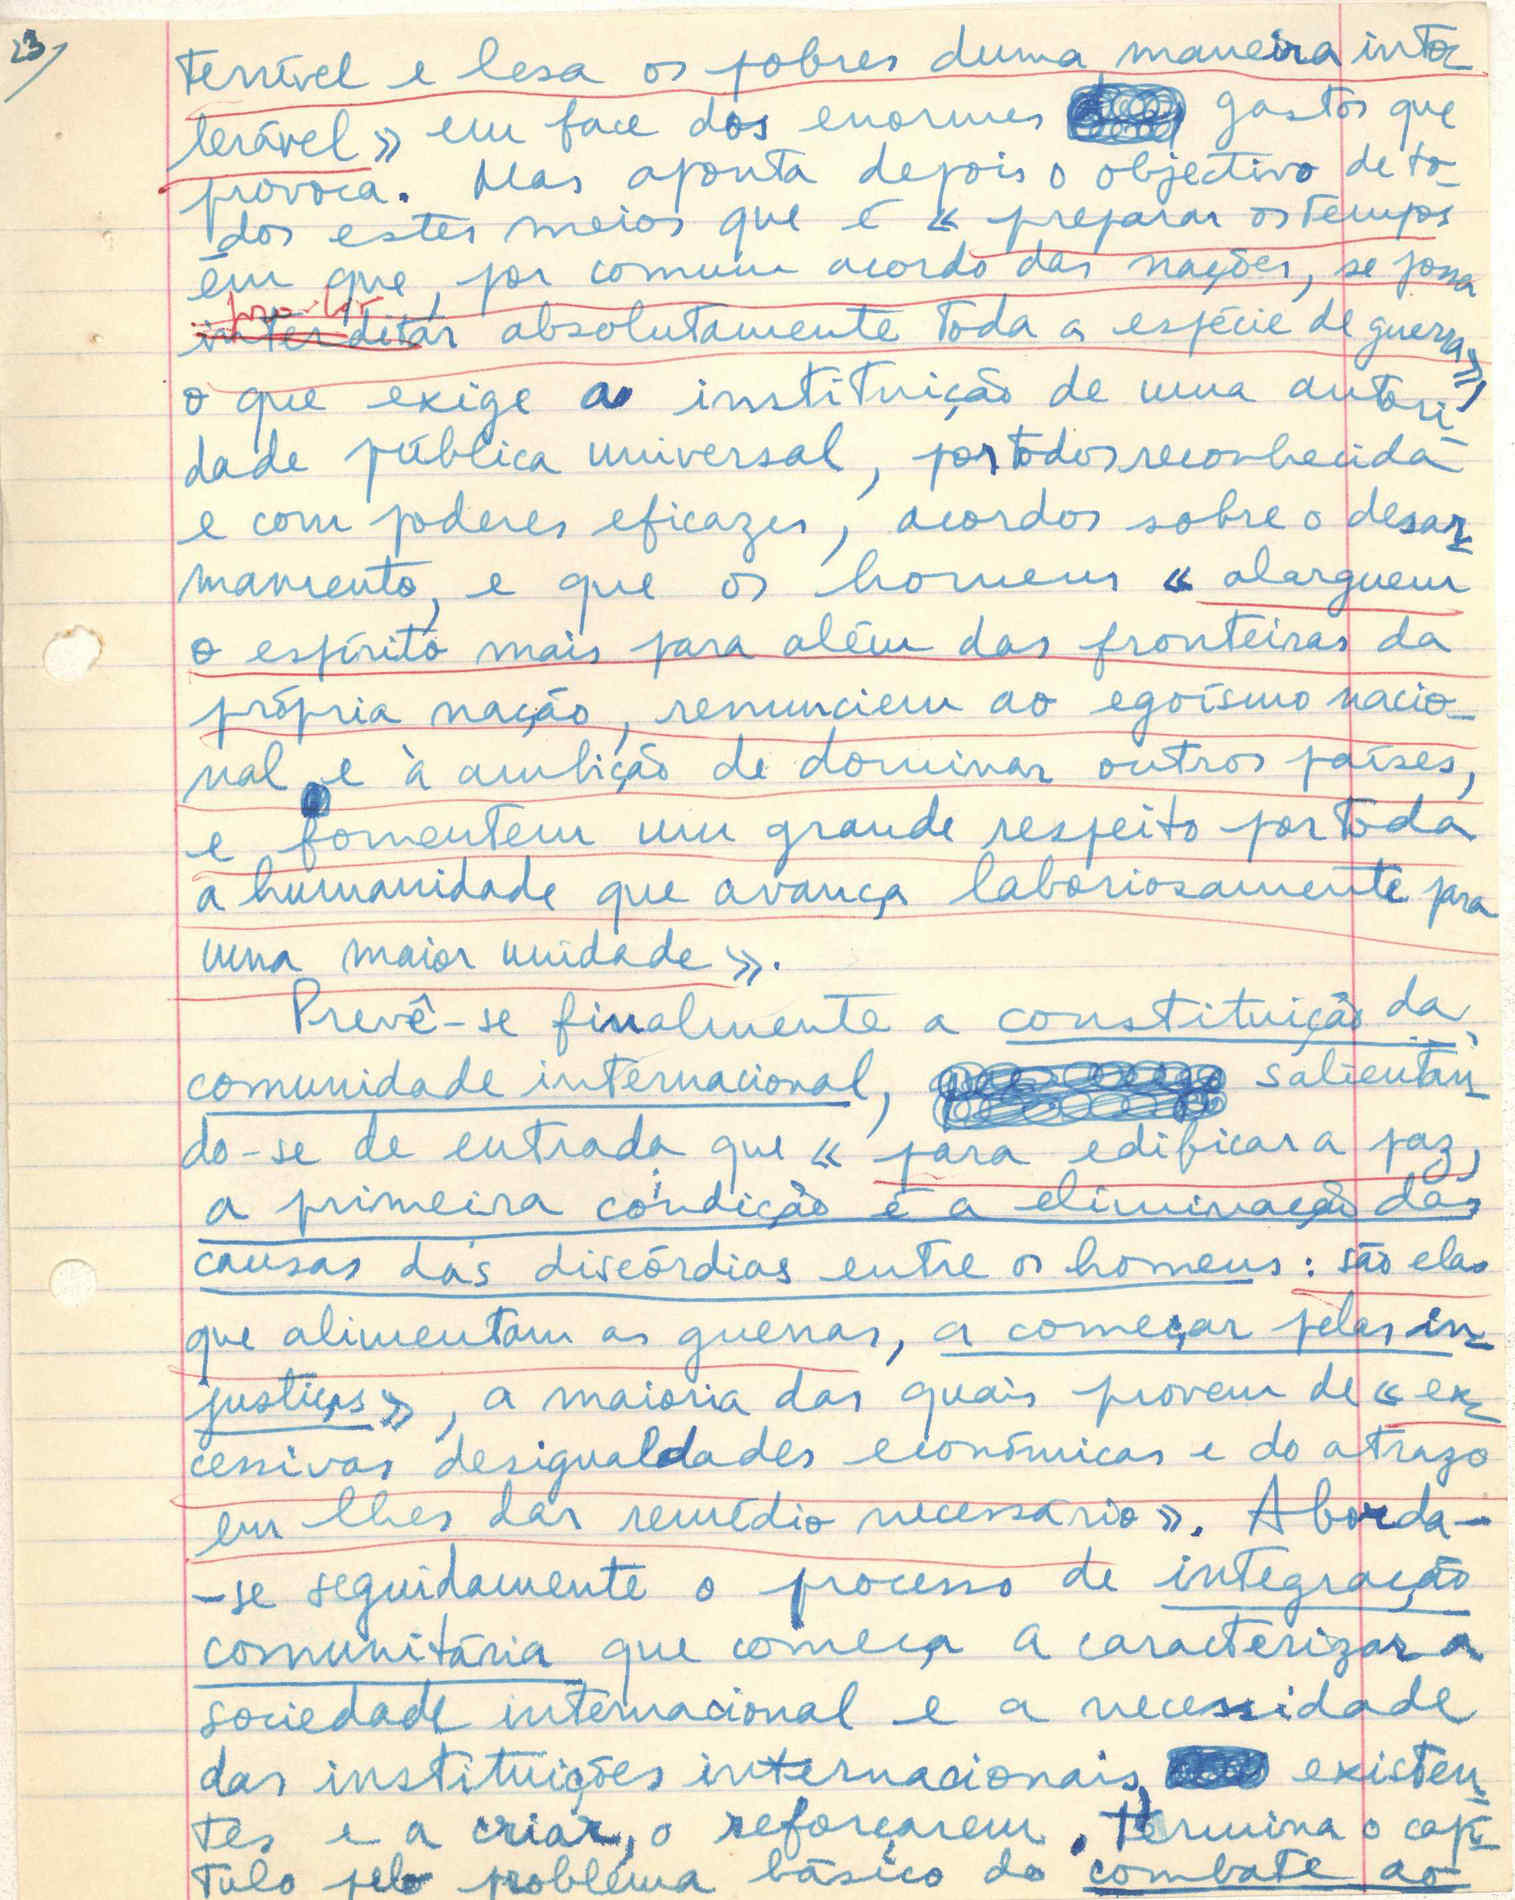 23/
terrível e lesa os pobres duma maneira into-
lerável» em face dos enormes gastos que
provoca. Mas aponta depois o objectivo de to-
dos estes meios que é «preparar os tempos
em que, por comum acordo das nações, se possa
proibir
interditar absolutamente toda a espécie de guerra»,
o que exige a instituição de uma autori-
dade pública universal, por todos reconhecida
e com poderes eficazes, acordos sobre o desar-
mamento, e que os homens «alarguem
o espírito mais para além das fronteiras da
própria nação, renunciem ao egoísmo nacio-
nal e à ambição de dominar outros países,
e fomentem um grande respeito por toda
a humanidade que avança laboriosamente para
uma maior unidade».
Prevê-se finalmente a constituição da
comunidade internacional, salientan-
do-se de entrada que «para edificar a paz,
a primeira condição é a eliminação das
causas das discórdias entre os homens: são elas
que alimentam as guerras, a começar pelas in-
justiças», a maioria das quais provem de «ex-
cessivas desigualdades económicas e do atrazo
em lhes dar remédio necessário». Aborda-
-se seguidamente o processo de integração
comunitária que começa a caracterizar a
sociedade internacional e a necessidade
das instituições internacionais, existen-
tes e a criar, o reforçarem. Termina o capí-
tulo pelo problema básico do combate ao